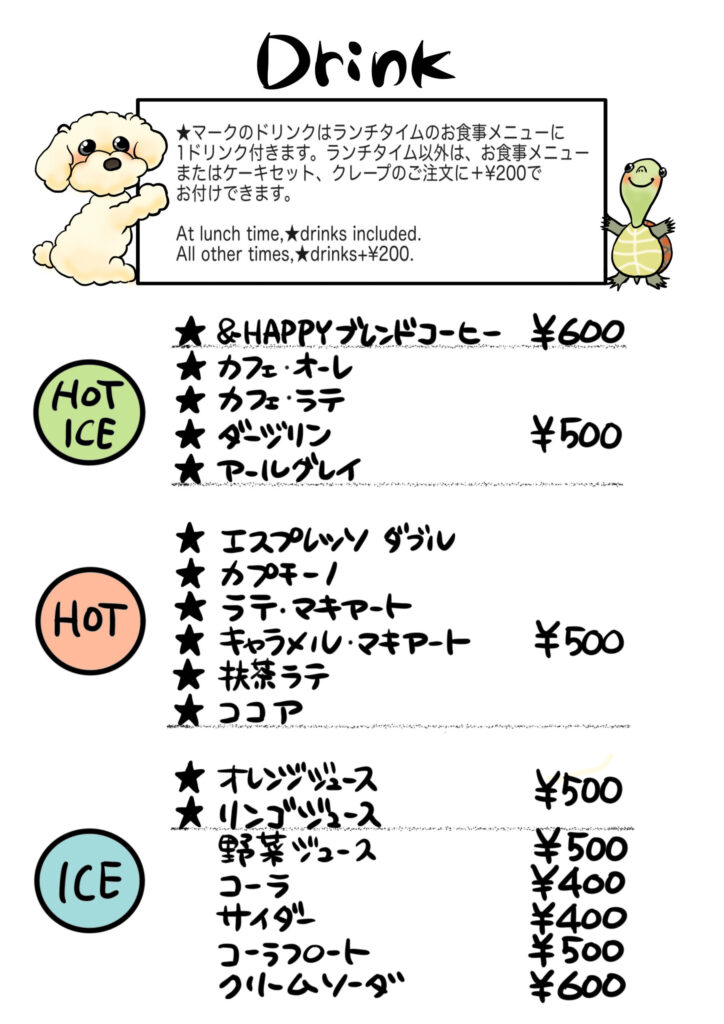 Drink
★マークのドリンクはランチタイムのお食事メニューに
1ドリンク付きます。ランチタイム以外は、お食事メニュー
またはケーキセット、クレープのご注文に＋¥200で
お付けできます。
At lunch time,★drinks included.
All other times,★drinks+¥200.
HOT
ICE
★ &HAPPYブレンドコーヒー ¥600
★ カフェ・オーレ
★ カフェ・ラテ
★ ダージリン ¥500
★ アールグレイ
HOT
★ エスプレッソ ダブル
★ カプチーノ
★ ラテ・マキアート
★ キャラメル・マキアート ¥500
★ 抹茶ラテ
★ ココア
ICE
★ オレンジジュース ¥500
★ リンゴジュース
野菜ジュース ¥500
コーラ ¥400
サイダー ¥400
コーラフロート ¥500
クリームソーダ ¥600